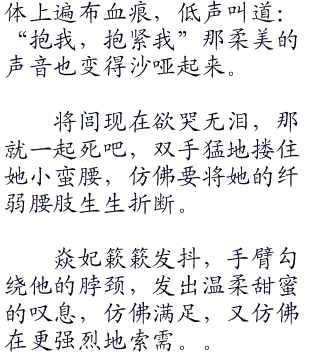 体上遍布血痕，低声叫道：
“抱我，抱紧我”那柔美的
声音也变得沙哑起来。
将闾现在欲哭无泪，那
就一起死吧，双手猛地搂住
她小蛮腰，仿佛要将她的纤
弱腰肢生生折断。
焱妃簌簌发抖，手臂勾
绕他的脖颈，发出温柔甜蜜
的叹息，仿佛满足，又仿佛
在更强烈地索需。。